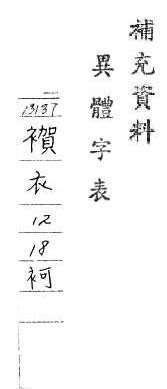 補充資料
異體字表
13137
衣
12
18
袔